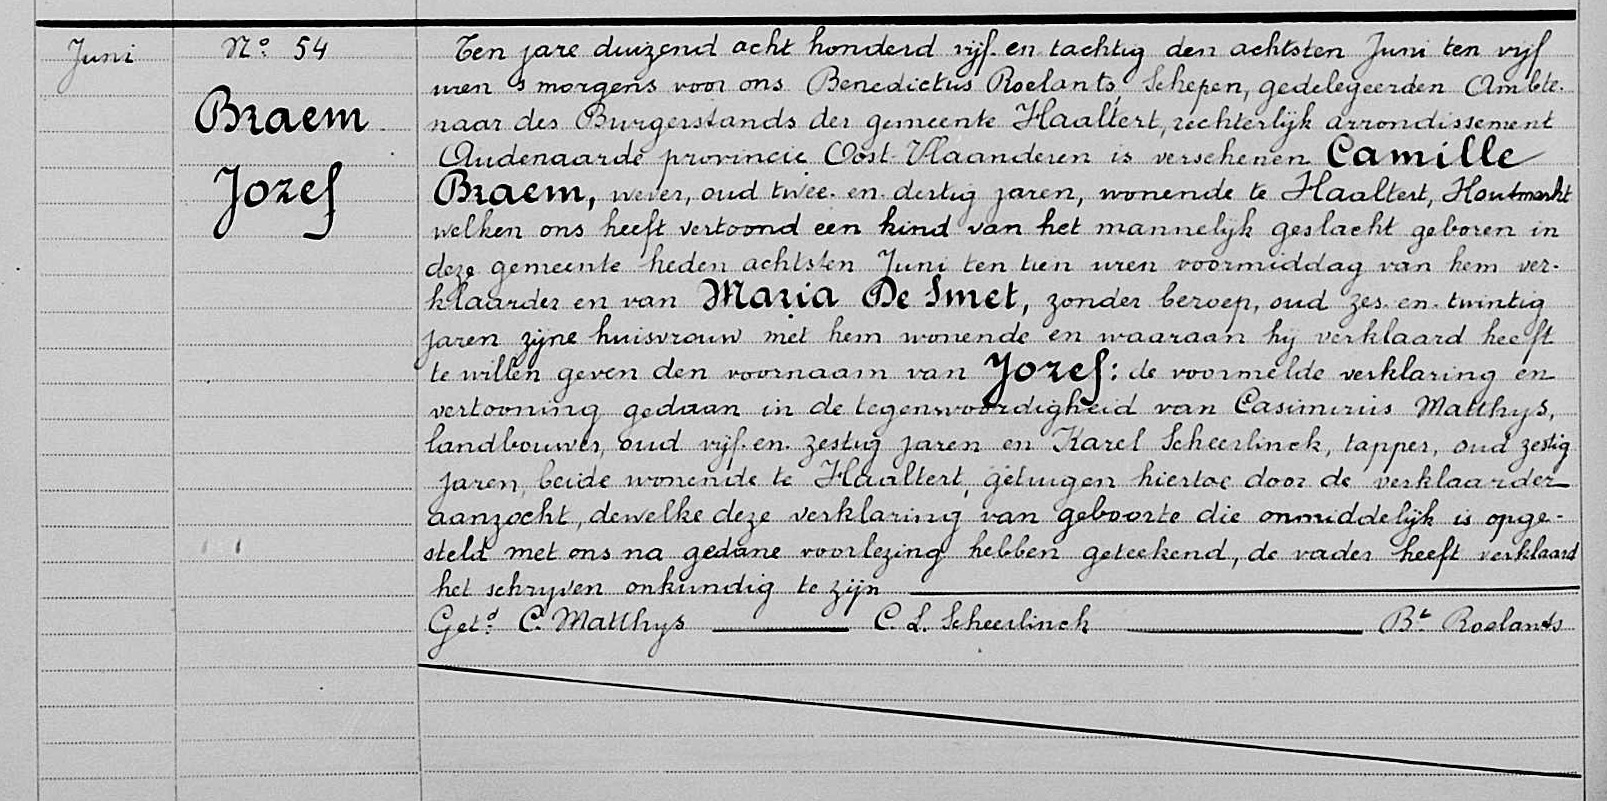 Juni
Nº 54
Braem
Jozef
Ten jare duizend acht honderd vijf en tachtig den achtsten Juni ten vijf
uren 's morgens voor ons Benedictus Roelants Schepen, gedelegeerden Ambte-
naar des Burgerstands der gemeente Haaltert, rechterlijk arrondissement
Audenaarde provincie Oost-Vlaanderen is verschenen Camille
Braem, wever, oud twee-en-dertig jaren, wonende te Haaltert, Houtmarkt
welken ons heeft vertoond een kind van het mannelijk geslacht geboren in
deze gemeente heden achtsten Juni ten tien uren voormiddag van hem ver-
klaarder en van Maria De Smet, zonder beroep, oud zes-en-twintig
jaren zijne huisvrouw met hem wonende en waaraan hij verklaard heeft
te willen geven den voornaam van Jozef: de voormelde verklaring en
vertooning gedaan in de tegenwoordigheid van Casimirus Matthys,
landbouwer, oud vijf-en-zestig jaren en Karel Scheerlinck, tapper, oud zestig
jaren, beide wonende te Haaltert, getuigen hiertoe door de verklaarder
aanzocht, dewelke deze verklaring van geboorte die onmiddelijk is opge-
steld met ons na gedane voorlezing hebben geteekend, de vader heeft verklaard
het schryven onkundig te zijn
Getd. C. Matthys C. L. Scheerlinck Bt Roelants